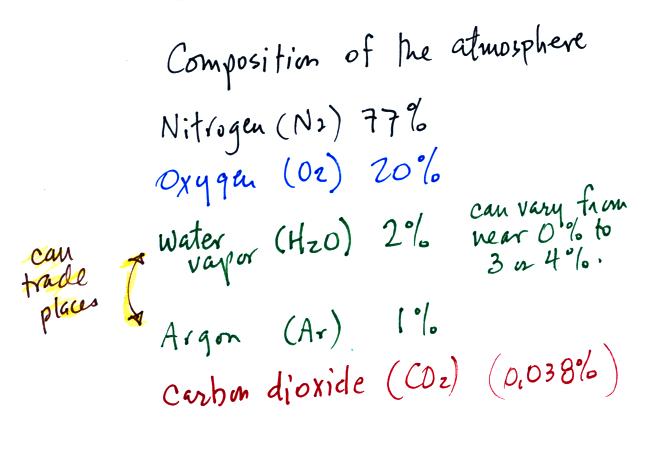 Composition of the atmosphere
Nitrogen (N2) 77%
Oxygen (O2) 20%
water vapor (H2O) 2%
can vary from
near 0% to
3 or 4%.
can
trade
places
Argon (Ar) 1%
Carbon dioxide (CO2) (0.038%)